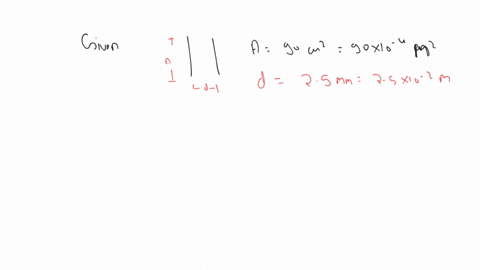 Given
A = 90 cm² = 90×10⁻⁴ m²
d = 2.5 mm = 2.5×10⁻² m
A
d